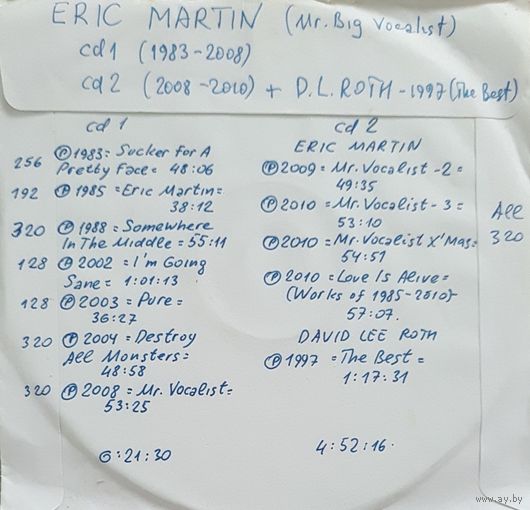 ERIC MARTIN (Mr. Big Vocalist)
cd 1 (1983-2008)
cd 2 (2008-2010) + D.L. ROTH-1997 (The Best)
cd 1
256 ℗ 1983= Sucker For A
Pretty Face= 48:06
192 ℗ 1985 =Eric Martin=
38:12
320 ℗ 1988= Somewhere
In The Middle = 55:11
128 ℗ 2002 = I'm Going
Sane= 1:01:13
128 ℗ 2003= Pure=
36:27
320 ℗ 2004= Destroy
All Monsters=
48:58
320 ℗ 2008= Mr. Vocalist=
53:25
6:21:30
cd 2
ERIC MARTIN
℗ 2009= Mr. Vocalist -2=
49:35
℗ 2010= Mr. Vocalist-3=
53:10
℗ 2010= Mr. Vocalist X'Mas=
54:51
℗ 2010= Love Is Alive=
(Works of 1985-2010)-
57:07.
DAVID LEE ROTH
℗ 1997 =The Best=
1:17:31
4:52:16.
All
320
www.ay.by